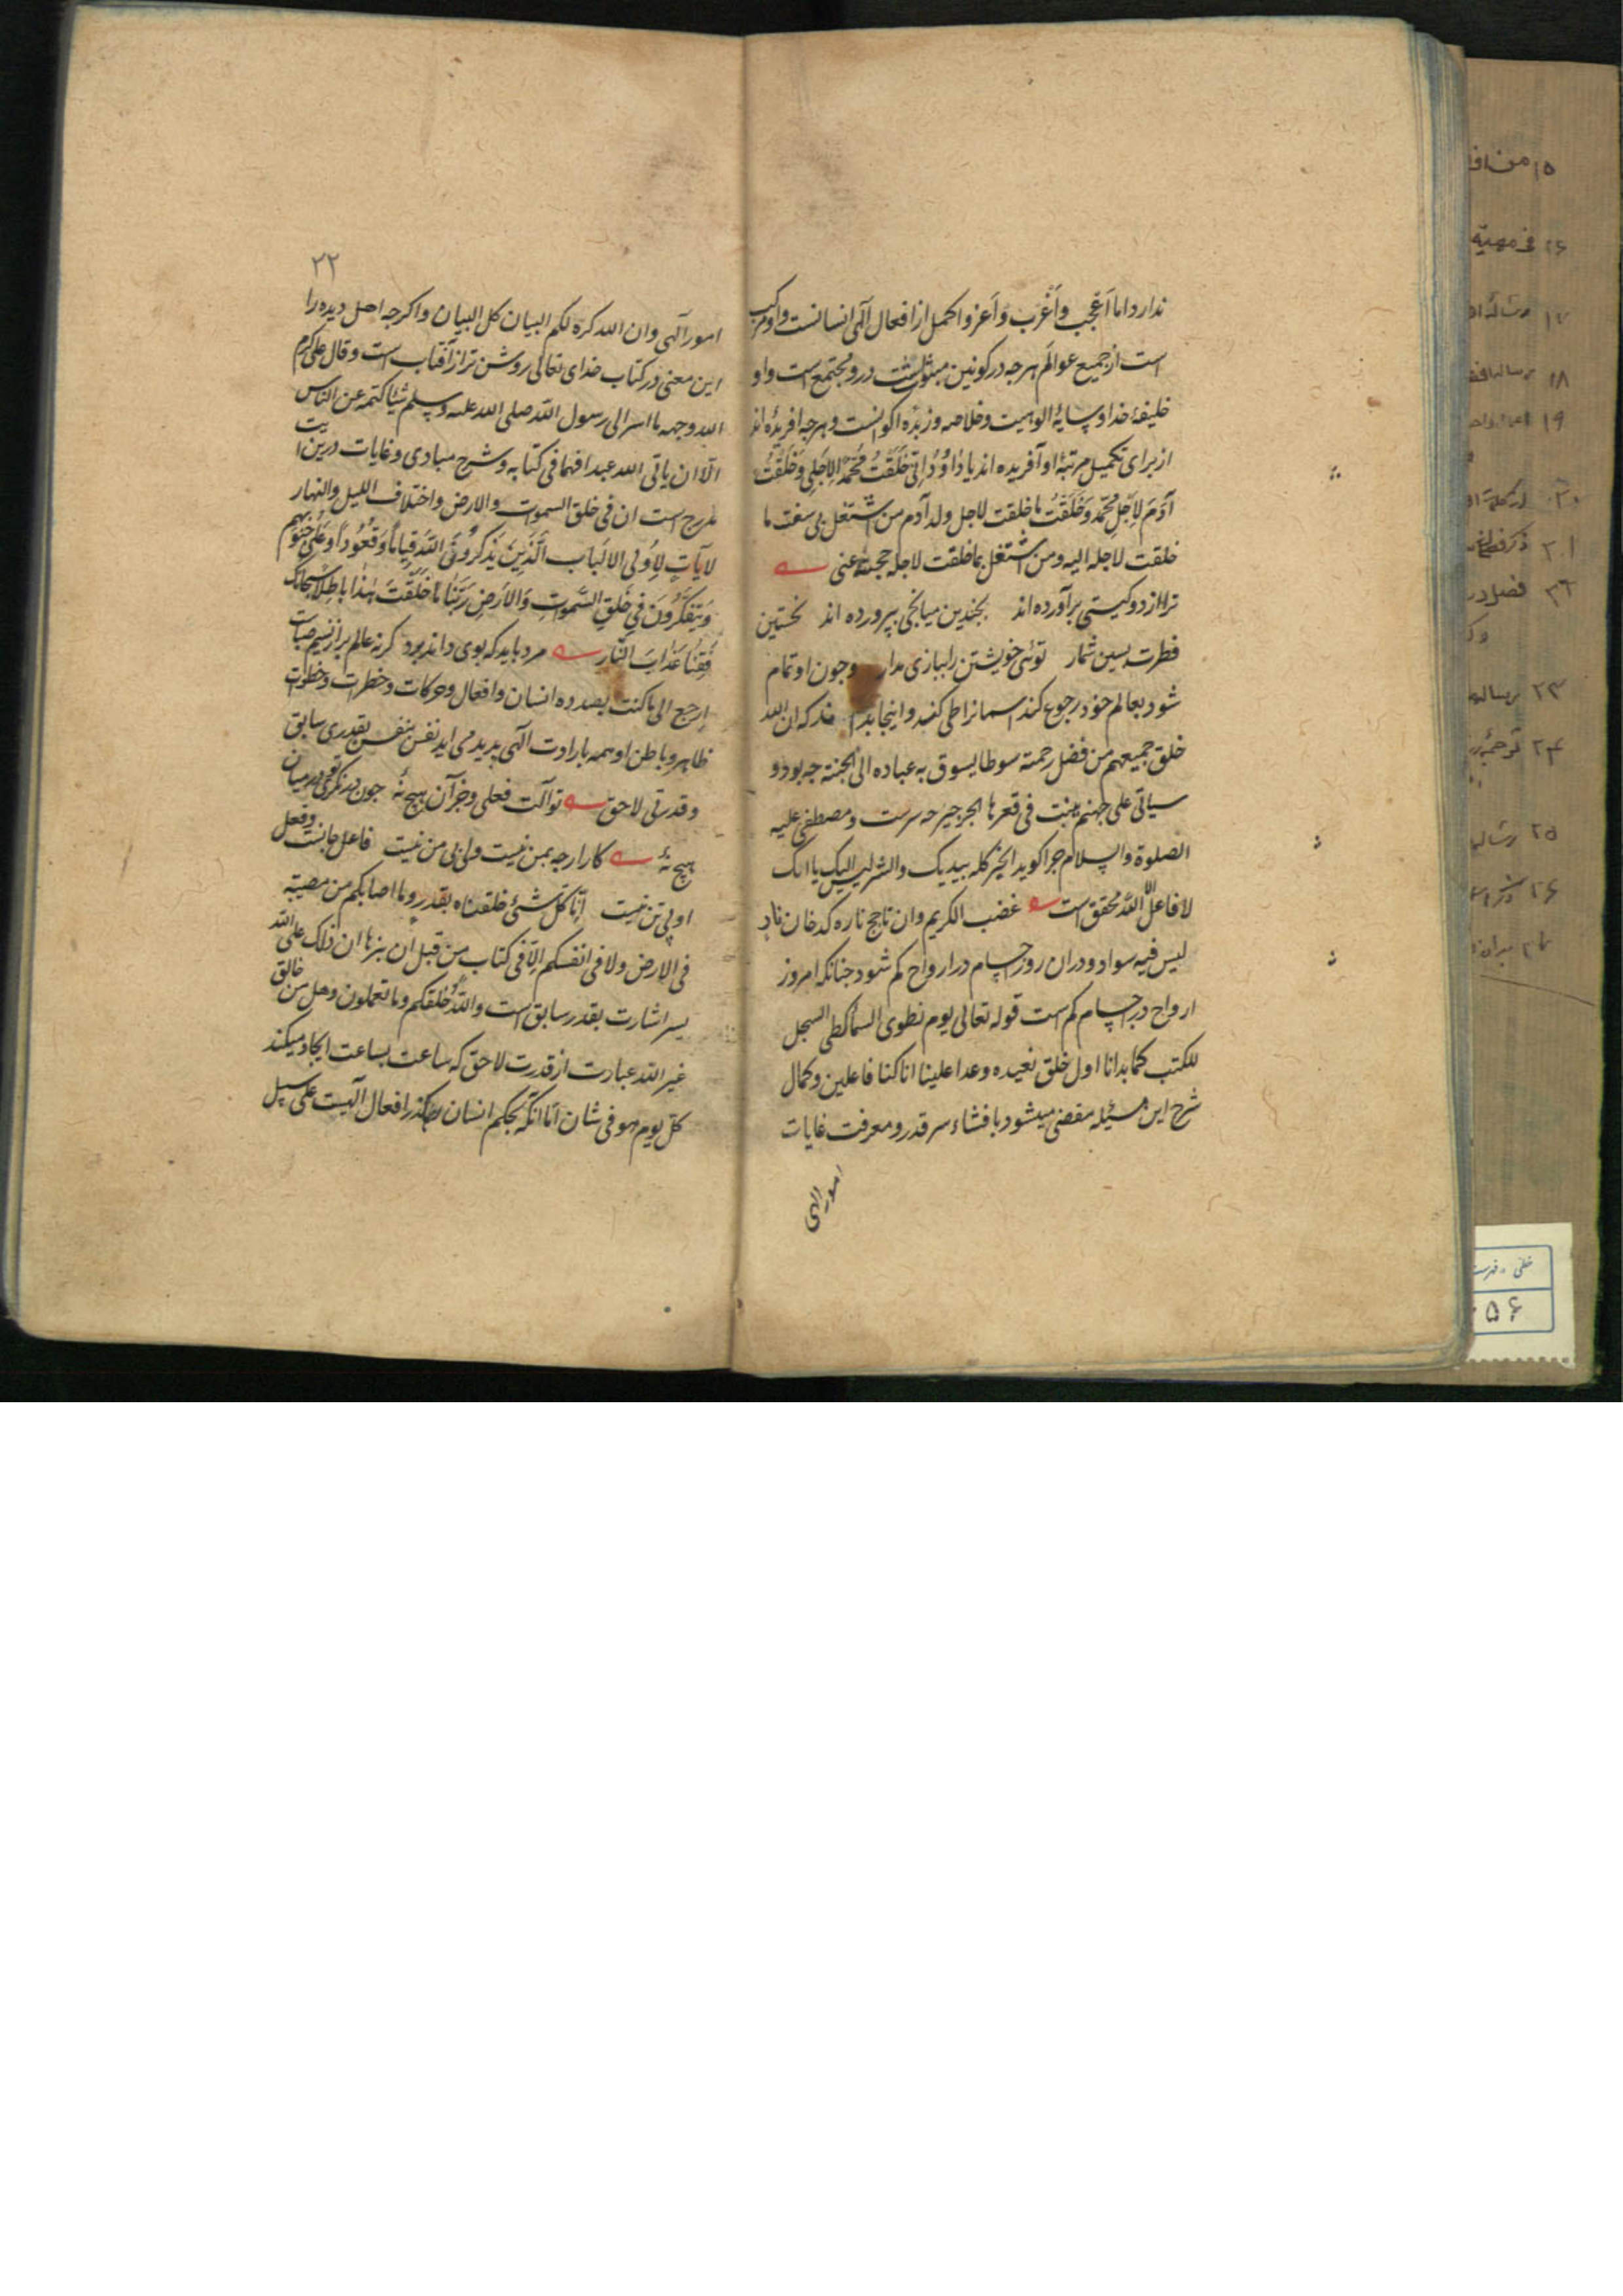 ندارد اما اَعْجب واَغْرَب وَاَعز و اکمل از افعال الٓهی انسانست و او مرکب
است از جمیع عوالَم هرچه در کونین مبثوثست درو مجتمع است و او
خلیفهٔ خدا و سایهٔ الوهیت و خلاصه و زبدهٔ اکوانست و هرچه افریده‌اند
از برای تکمیل مرتبهٔ او آفریده‌اند یا دٰاوُدُ اِنّی خَلَقْتُ مُحَمَّدًا لِاَجْلی وَخَلَقْتُ
آدَمَ لِاَجْلِ مُحَمَّد وَخَلَقْتُ ما خلقت لاجل ولد آدم من اشتغل بی سقت ما
خلقت لاجله الیه ومن اشتغل بما خلقت لاجله حجبته عنی
ترا از دو کیتی برآورده‌اند بجندین میانجی بپرورده‌اند نخستین
فطرت پسین شمار توئی خویشتن را ببازی مدار وجون او تمام
شود بعالم خود رجوع کند اسمانرا طی کنند و اینجا بدا که ان الله
خلق جمیعهم من فضل رحمته سوطا یسوق به عباده الی الجنة جه بود و
سیاتی علی جهنم ینبت فی قعرها الجرجیر جه سرست و مصطفی علیه
الصلوة والسلام جرا کوید الخیر کله بیدیک والشر لیس الیک یا انک
لا فاعل الّا الله محقق است غضب الکریم وان تاجج ناره کدخان نادٍ
لیس فیه سواد و دران روز اجسام در ارواح کم شود جنانکه امروز
ارواح در اجسام کم است قوله تعالی یوم نطوی السماء کطی السجل
للکتب کما بدانا اول خلق نعیده وعدا علینا انا کنا فاعلین و کمال
شرح این مسئله مفضی میشود بافشاء سر قدر و معرفت غایات
امور الهی
۲۲
امور آلهی وان الله کره لکم البیان کل البیان و اکرجه اهل دیده را
این معنی در کتاب خدای تعالی روشن‌تر از آفتاب است وقال علی کرم
الله وجهه ما اسر الی رسول الله صلی الله علیه وسلم شیئا کتمه عن الناس
الّا ان یاتی الله عبدا فهما فی کتابه و شرح مبادی و غایات درین آیت
مدرج است ان فی خلق السموات والارض واختلاف اللیل والنهار
لآیاتٍ لِاُولی الالباب الَّذینَ یَذکرُونَ اللّهَ قِیاماً وَقُعُوداً وَعَلٰی جُنُوبِهِم
وَیَتَفَکَّرُونَ فِی خَلقِ السَّمٰوات وَالاَرضِ رَبَّنا مٰا خَلَقْتَ هٰذا باطِلاً سُبحانک
فَقِنا عَذابَ النّارِ مرد باید که بوی داند برد کرنه عالم پر از نسیم صباست
اِرجع الی ما کنت بصدده انسان و افعال و حرکات و خطرات و خطوات
ظاهر و باطن او همه بارادت آلهی پدید می اید نفس بنفس بقدری سابق
و قدرتی لاحق تو آلت فعلی و جز آن هیچ نهٔ جون در نکری میان
هیچ نهٔ کار ارجه بمن نیست ولی بی من نیست فاعل جانست وفعل
او بی تن نیست اِنّا کُلَّ شئ خلقناه بقدر وما اصابکم من مصیبة
فی الارض ولا فی انفسکم الّا فی کتاب من قبل ان نبرأها ان ذلک علی الله
یسیر اشارت بقدر سابق است والله خلقکم وما تعملون وهل من خالق
غیر الله عبارت از قدرت لاحق که ساعت بساعت ایجاد میکند
کل یوم هو فی شان امّا انکه بحکم انسان افعال آلهیست علی سبیل
۱۵ من
۲۶ فی مهیة
۱۷
۱۸ رساله
۱۹
۲۰
۲۱ ذکر
فصل در
۲۳ رساله
۲۴ ترجمه
۲۵ رساله
۲۶
خطی - فهرست
۵۶